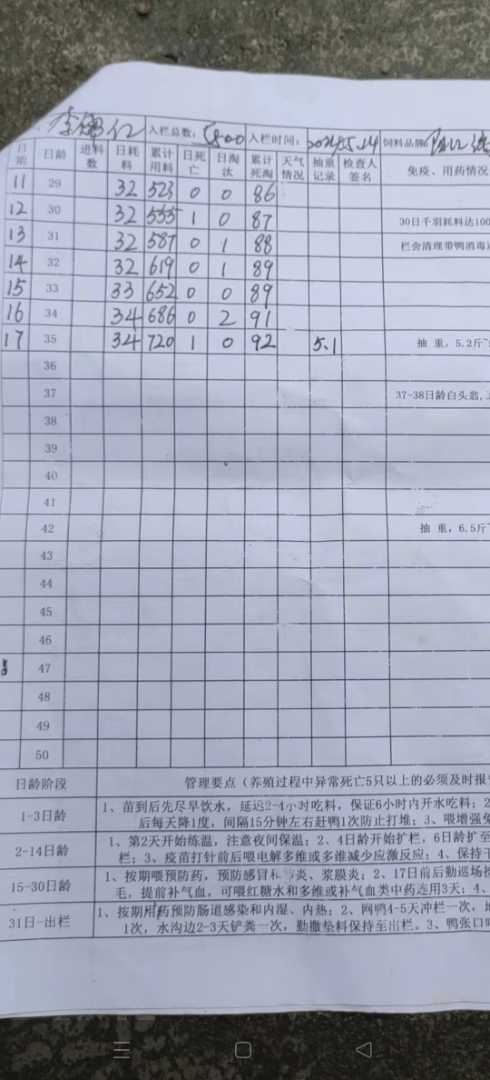 入栏总数: 5800 入栏时间: 2024.5.14 饲料品牌
日期 日龄 进料数 日耗料 累计用料 日死亡 日淘汰 累计死淘 天气情况 抽重记录 检查人签名 免疫、用药情况
11 29 32 523 0 0 86
12 30 32 555 1 0 87 30日千羽耗料达100
13 31 32 587 0 1 88 栏舍清理带鸭消毒
14 32 32 619 0 1 89
15 33 33 652 0 0 89
16 34 34 686 0 2 91
17 35 34 720 1 0 92 5.1 抽 重, 5.2斤
36
37 37-38日龄白头翁,
38
39
40
41
42 抽 重, 6.5斤
43
44
45
46
47
48
49
50
日龄阶段 管理要点（养殖过程中异常死亡5只以上的必须及时报
1-3日龄 1、苗到后先尽早饮水，延迟2-4小时吃料，保证6小时内开水吃料；2
后每天降1度，间隔15分钟左右赶鸭1次防止打堆；3、喂增强免
2-14日龄 1、第2天开始练温，注意夜间保温；2、4日龄开始扩栏，6日龄扩至
栏；3、疫苗打针前后喂电解多维或多维减少应激反应；4、保持干
15-30日龄 1、按期喂预防药，预防感冒 炎、浆膜炎；2、17日前后勤巡场
毛，提前补气血，可喂红糖水和多维或补气血类中药连用3天；4、
31日-出栏 1、按期用药预防肠道感染和内湿、内热；2、网鸭4-5天冲栏一次，
1次，水沟边2-3天铲粪一次，勤撒垫料保持至出栏。3、鸭张口